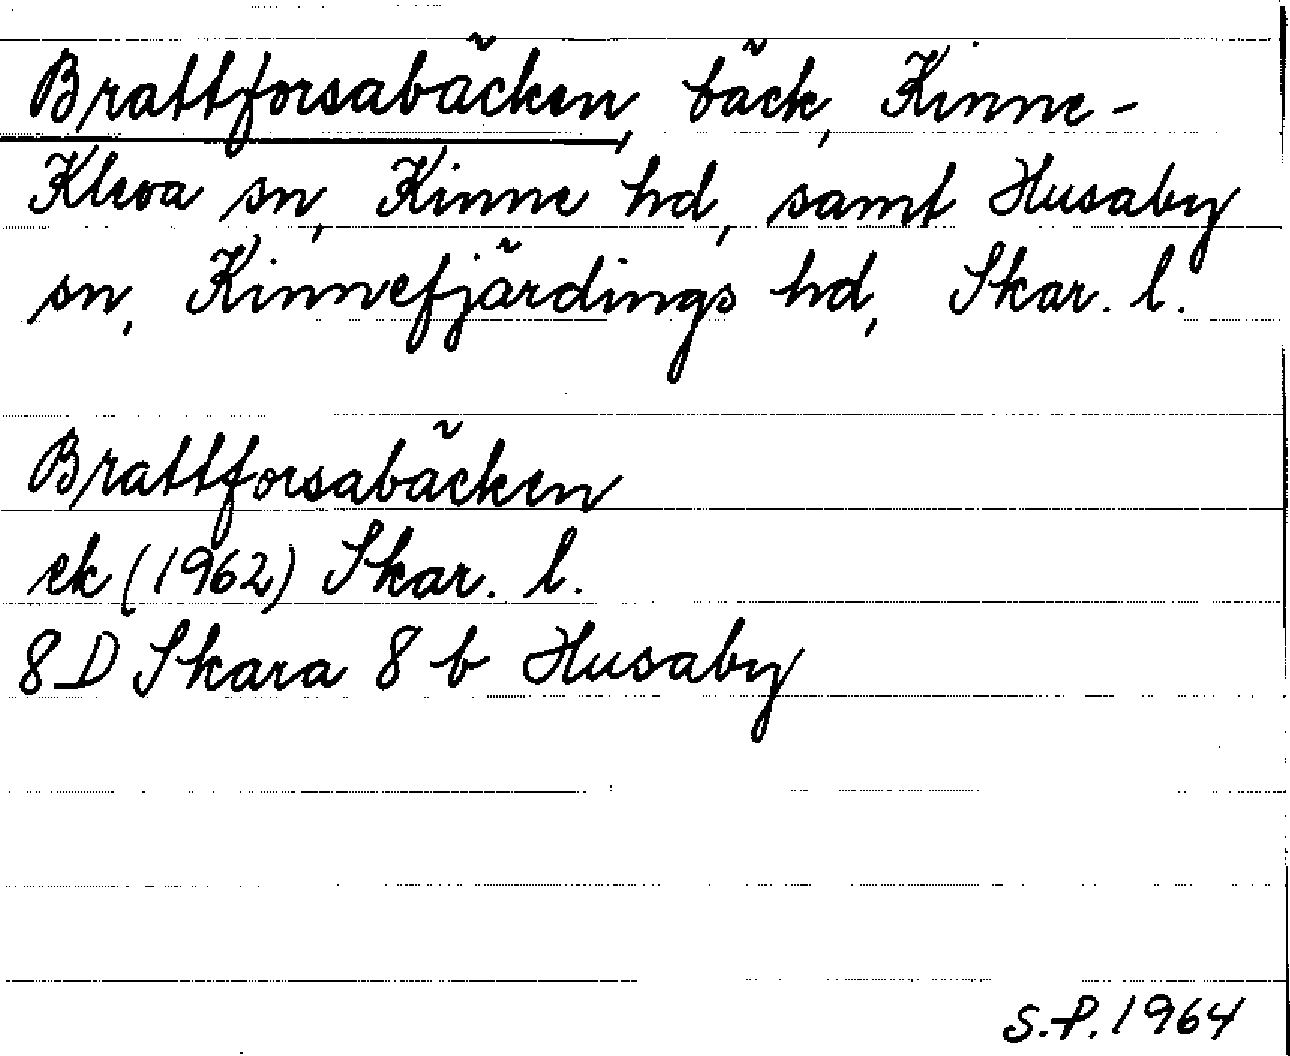 Brattforsabäcken, bäck, Kinne-
Kleva sn, Kinne hd, samt Husaby
sn, Kinnefjärdings hd, Skar. l.
Brattforsabäcken
ek (1962) Skar. l.
8D Skara 8 b Husaby
S.P. 1964